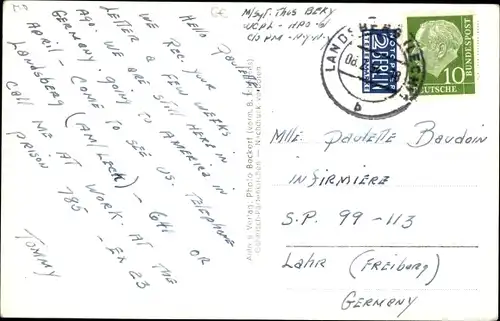 M/Sgt. Thos BERY
Hello Paulette
We rec. your
letter a few weeks
ago. We are still here in
Germany going to America in
April - come to see us. Telephone
Landsberg (AM/Lech) - 641 or
call me at work. At the
prison 785 - Ex 23
Tommy
Auto u. Verlag, Photo Beckert (verm. B. Johannes)
Garmisch-Partenkirchen - Nachdruck verboten
LANDSBERG (LECH)
b
NOTOPFER
2 BERLIN
STEUERMARKE
DEUTSCHE
BUNDESPOST
10
Mlle Paulette Baudoin
Infirmière
S.P. 99-113
Lahr (Freiburg)
Germany